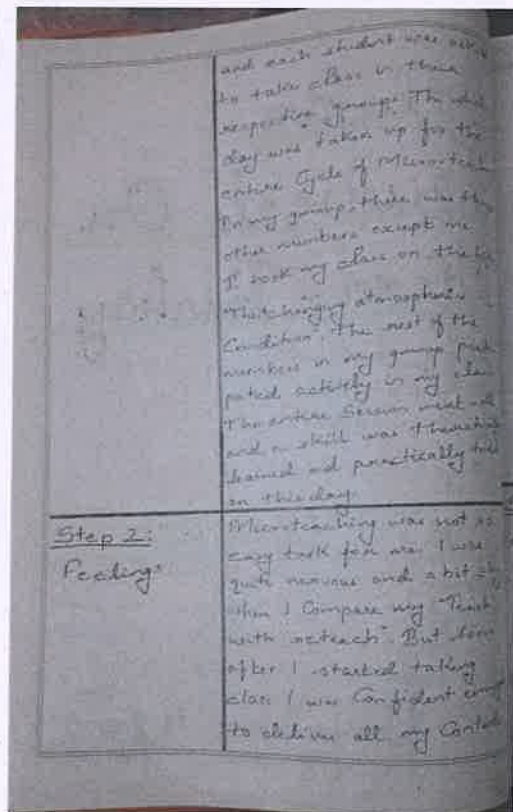 and each student was
to take class in their
respective group. The whole
day was taken up for the
entire Cycle of Microteach
In my group, there was
other numbers except me.
I took my class on the
"The changing atmospheric
Condition". The rest of the
numbers in my group
pated actively in my class
The entire Session went
and a skill was
learned and practically
on this day.
Step 2:
Feelings
Microteaching was not an
easy task for me. I was
quite nervous and a bit
when I Compare my "Teach
with reteach". But
after I started taking
class I was Confident
to deliver all my